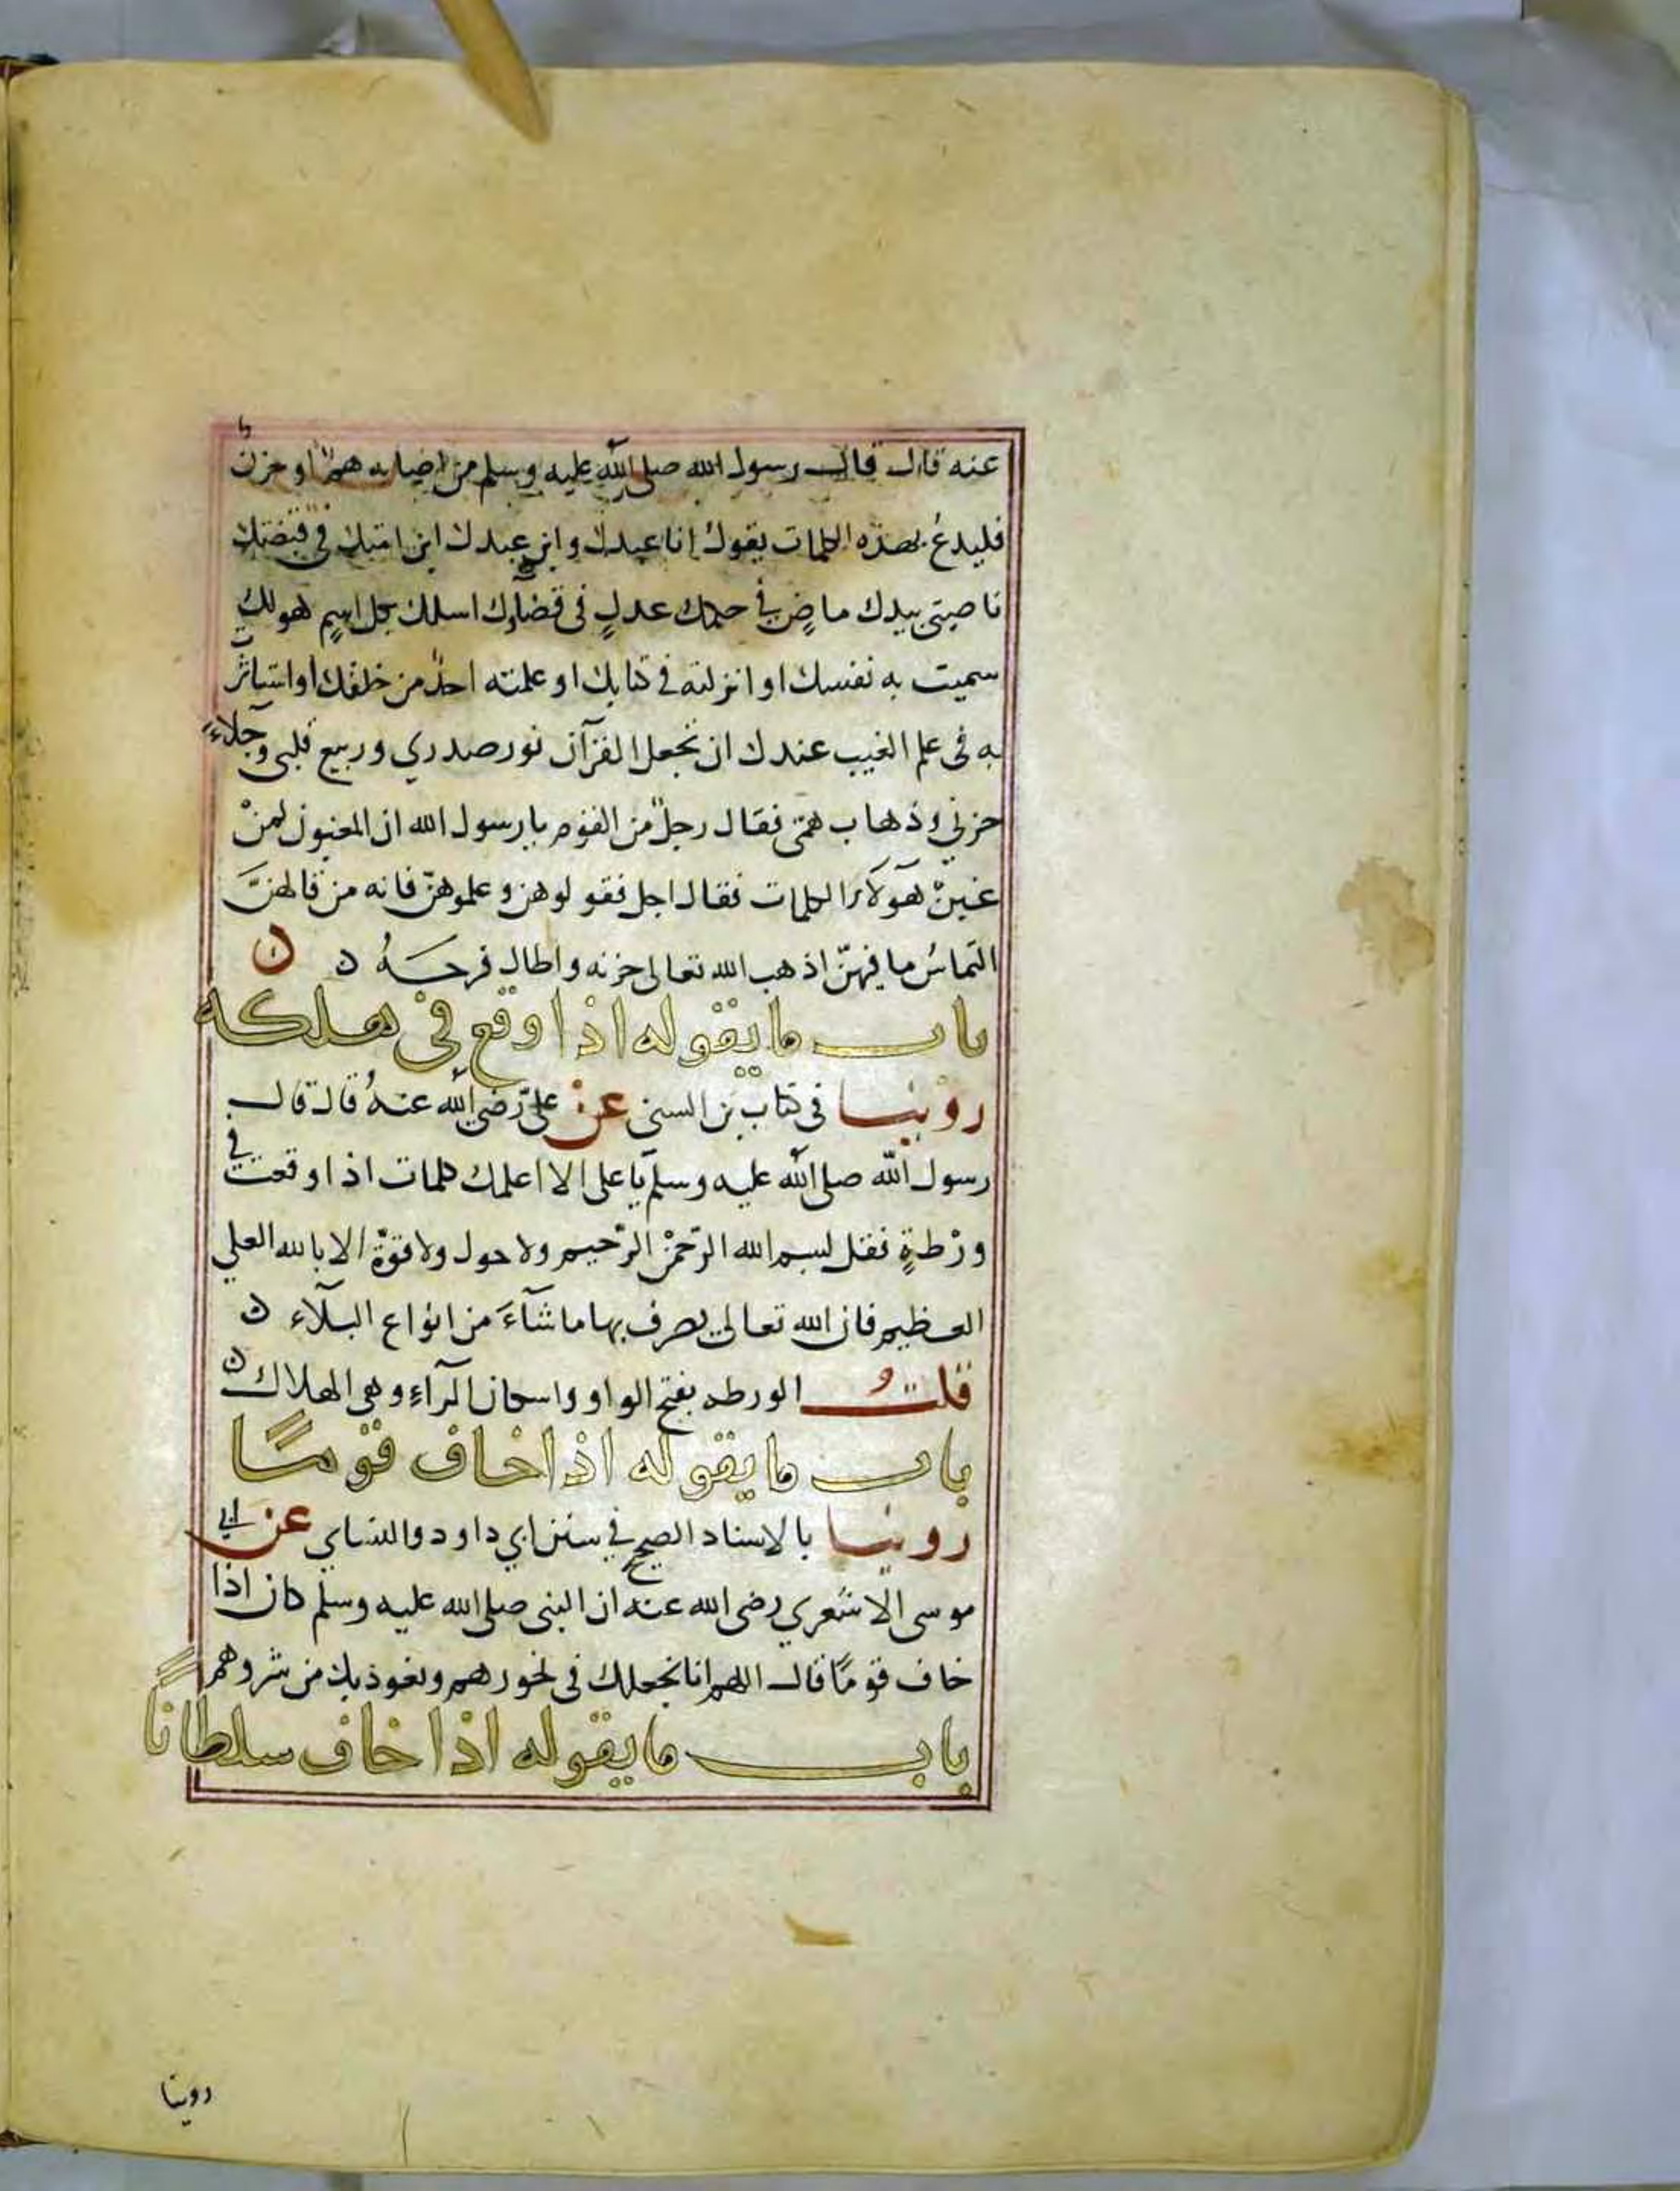 عنه قال قال رسول الله صلى الله عليه وسلم من اصابه همٌّ او حزنٌ
فليدعُ بهذه الكلمات يقول انا عبدك وابن عبدك ابن امتك في قبضتك
ناصيتي بيدك ماضٍ فيَّ حكمك عدلٍ في قضآؤك اسلك بكل اسمٍ هو لك
سميت به نفسك او انزلته في كتابك او علمته احدٌ من خلقك او استاثرت
به في علم الغيب عندك ان تجعل القرآن نور صدري وربيع قلبي وجلآءَ
حزني وذهاب همّي فقال رجلٌ من القوم يا رسول الله ان المغبون لمنْ
غبنْ هؤلآء الكلمات فقال اجل فقولوهن وعلموهنّ فانه من قالهنَّ
التماسُ ما فيهنّ اذهب الله تعالى حزنه واطال فرحهُ ن ن
باب ما يقوله اذا وقع في هلكه
روينا في كتاب بن السني عن عليّ رضي الله عنهُ قال قال
رسول الله صلى الله عليه وسلم يا على الا اعلمك كلمات اذا وقعت في
ورْطةٍ فقل بسم الله الرّحمن الرّحيم ولا حول ولا قوّة الا بالله العلي
العظيم فان الله تعالى يصرف بها ما شآءَ من انواع البلآء ن
قلتُ الورطه بفتح الواو واسكان الرآءِ وهي الهلاك ن
باب ما يقوله اذا خاف قومًا
روينا بالاسناد الصحيح في سنن ابي داود والنساي عن ابي
موسى الاشعري رضى الله عنه ان النبي صلى الله عليه وسلم كان اذا
خاف قومًا قال اللهم انا نجعلك في نحورهم ونعوذ بك من شروهم
باب ما يقوله اذا خاف سلطانًا
روينا